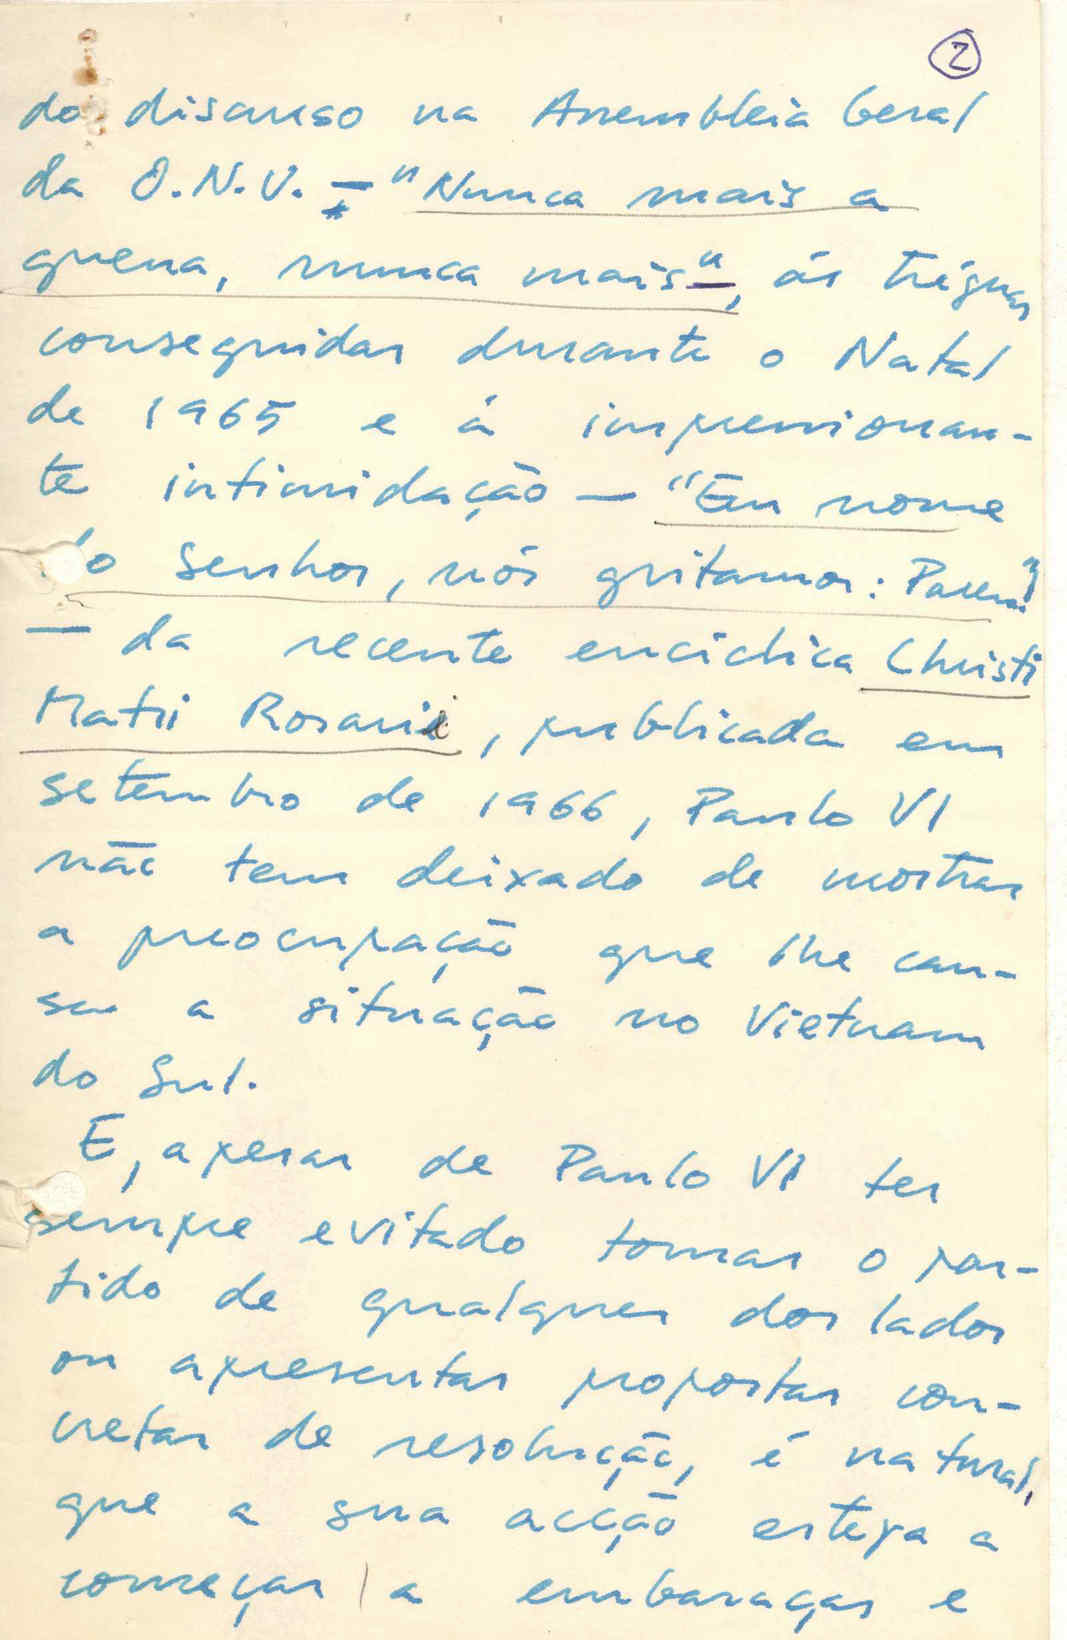 2
do discurso na Assembleia Geral
da O.N.U. — "Nunca mais a
guerra, nunca mais" —, às tréguas
conseguidas durante o Natal
de 1965 e à impressionan-
te intimidação — "Em nome
do Senhor, nós gritamos: Parem!"
— da recente encíclica Christi
Matri Rosarii, publicada em
setembro de 1966, Paulo VI
não tem deixado de mostrar
a preocupação que lhe cau-
sa a situação no Vietnam
do Sul.
E, apesar de Paulo VI ter
sempre evitado tomar o par-
tido de qualquer dos lados
ou apresentar propostas con-
cretas de resolução, é natural,
que a sua acção esteja a
começar a embaraçar e